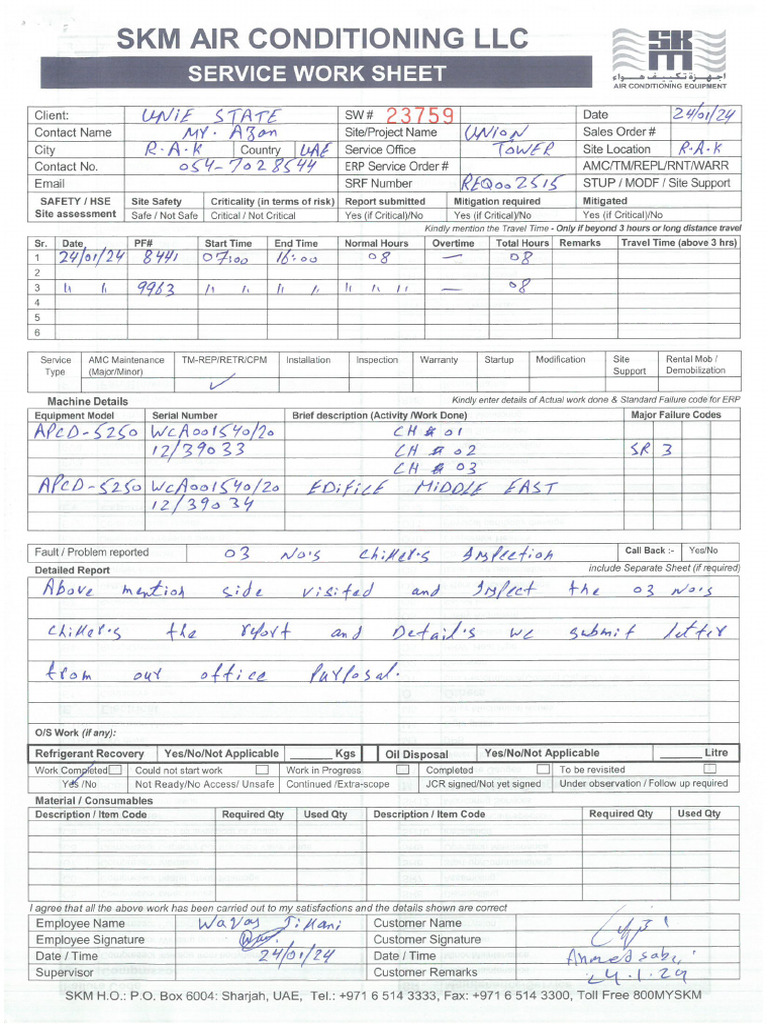 SKM AIR CONDITIONING LLC
SERVICE WORK SHEET
SKM
اجهزة تكييف هواء
AIR CONDITIONING EQUIPMENT
Client: UNIE STATE SW # 23759 Date 24/01/24
Contact Name MY. Azan Site/Project Name UNION Sales Order #
City R.A.K Country UAE Service Office TOWER Site Location R.A.K
Contact No. 054-7028544 ERP Service Order # AMC/TM/REPL/RNT/WARR
Email SRF Number REQ002515 STUP / MODF / Site Support
SAFETY / HSE Site Safety Criticality (in terms of risk) Report submitted Mitigation required Mitigated
Site assessment Safe / Not Safe Critical / Not Critical Yes (if Critical)/No Yes (if Critical)/No Yes (if Critical)/No
Kindly mention the Travel Time - Only if beyond 3 hours or long distance travel
Sr. Date PF# Start Time End Time Normal Hours Overtime Total Hours Remarks Travel Time (above 3 hrs)
1 24/01/24 8441 07:00 16:00 08 — 08
2
3 " " 9963 " " " " " " " — 08
4
5
6
Service AMC Maintenance TM-REP/RETR/CPM Installation Inspection Warranty Startup Modification Site Rental Mob /
Type (Major/Minor) ✓ Support Demobilization
Machine Details Kindly enter details of Actual work done & Standard Failure code for ERP
Equipment Model Serial Number Brief description (Activity /Work Done) Major Failure Codes
APCD-5250 WCA001540/20 CH # 01
12/39033 CH # 02 SR 3
CH # 03
APCD-5250 WCA001540/20 EDIFICE MIDDLE EAST
12/39034
Fault / Problem reported 03 No's chiller's Inspection Call Back :- Yes/No
Detailed Report include Separate Sheet (if required)
Above mention side visited and Inspect the 03 No's
chiller's the report and Detail's we submit letter
from our office Purposal.
O/S Work (if any):
Refrigerant Recovery Yes/No/Not Applicable ______ Kgs Oil Disposal Yes/No/Not Applicable ______ Litre
Work Completed Could not start work Work in Progress Completed To be revisited
Yes /No ✓ Not Ready/No Access/ Unsafe Continued /Extra-scope JCR signed/Not yet signed Under observation / Follow up required
Material / Consumables
Description / Item Code Required Qty Used Qty Description / Item Code Required Qty Used Qty
I agree that all the above work has been carried out to my satisfactions and the details shown are correct
Employee Name Waqas Jillani Customer Name
Employee Signature Customer Signature
Date / Time 24/01/24 Date / Time Ahmed
Supervisor Customer Remarks 24.1.24
SKM H.O.: P.O. Box 6004: Sharjah, UAE, Tel.: +971 6 514 3333, Fax: +971 6 514 3300, Toll Free 800MYSKM